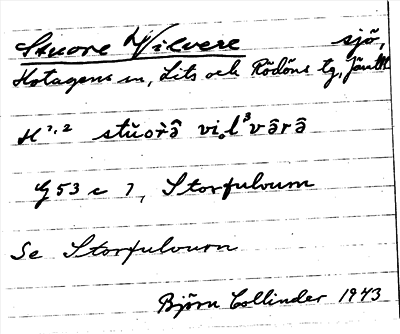 Stuore Vilvere sjö,
Hotagens sn, Lits och Rödöns tg, Jämtl
H 1,2 stùor̀â vi̥l³vârâ
G 53 c 7, Storfulvurn
Se Storfulvurn
Björn Collinder 1943